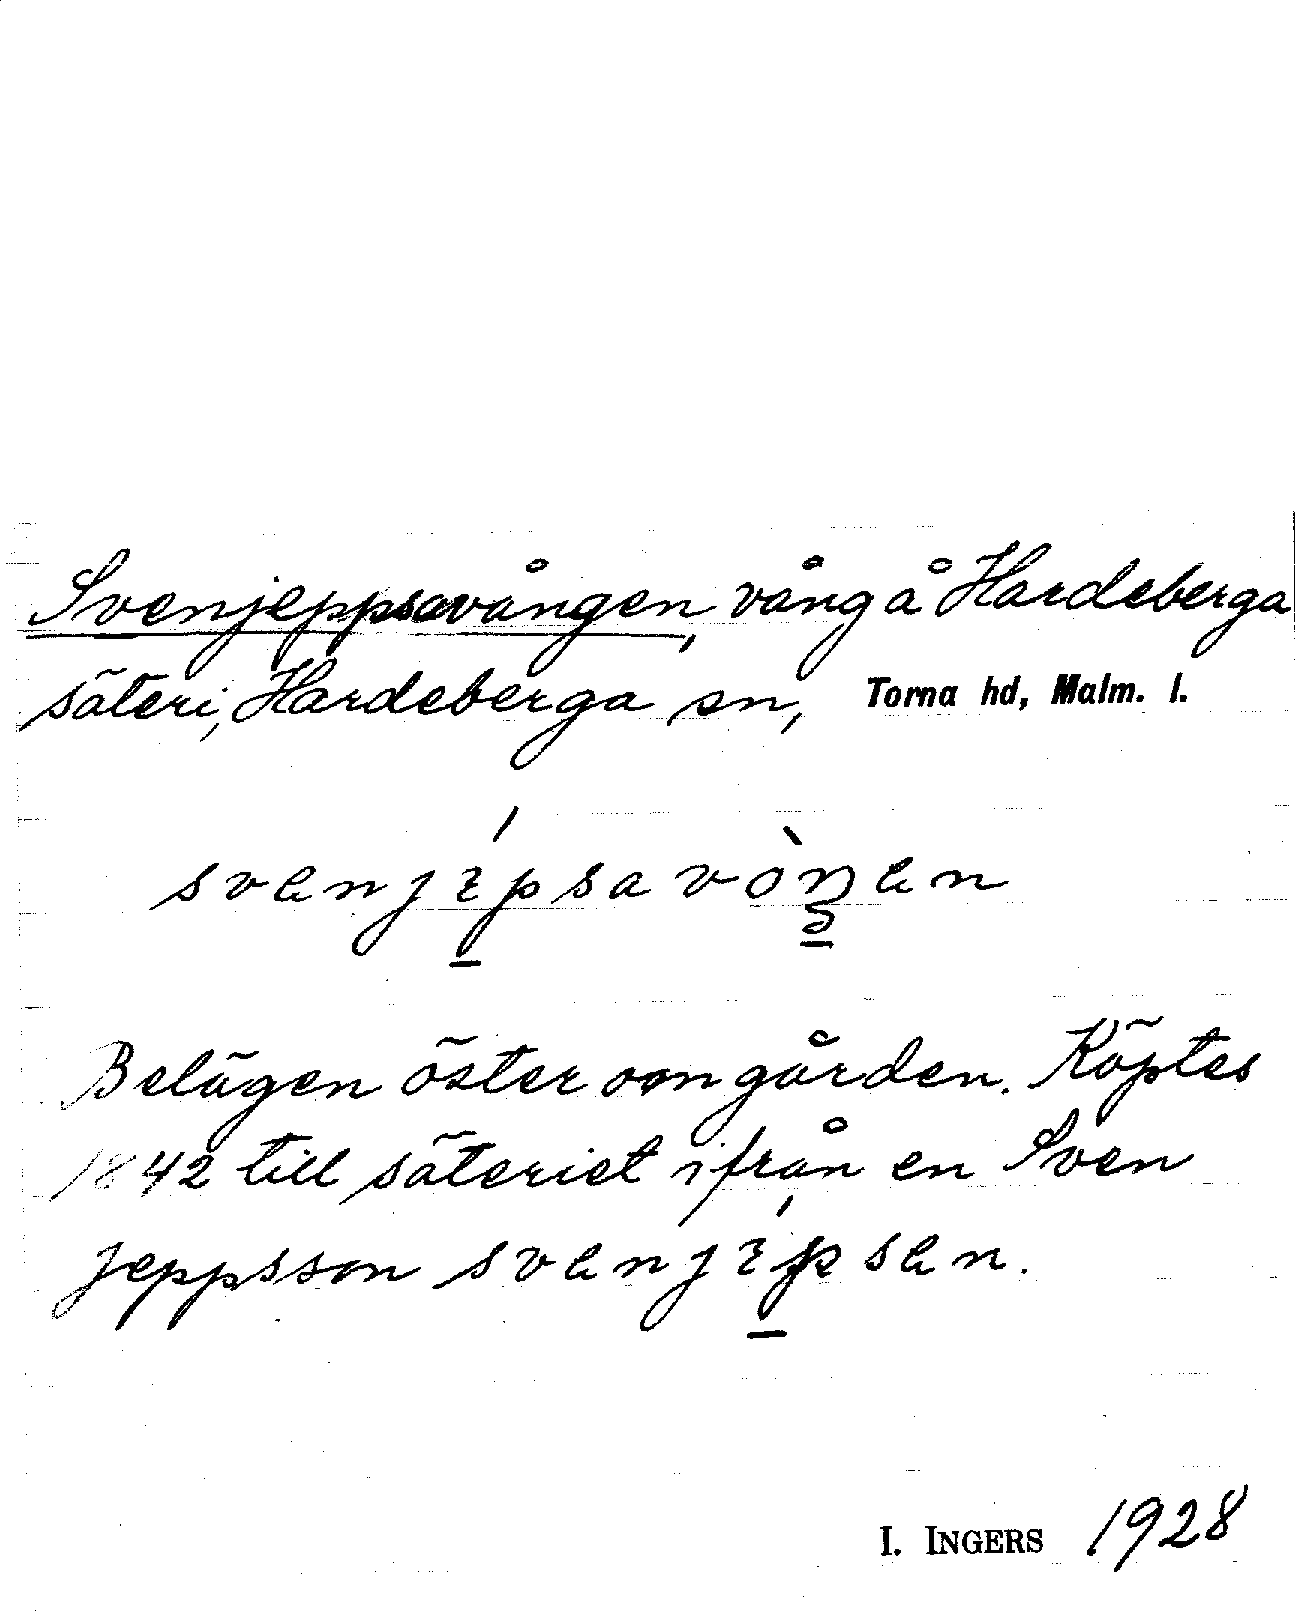 Svenjeppsavången, vång å Hardeberga
säteri, Hardeberga sn, Torna hd, Malm. l.
svenjɪ́psavòŋen
Belägen öster om gården. Köptes
1842 till säteriet ifrån en Sven
Jeppsson svenjɪ́psen.
I. INGERS 1928